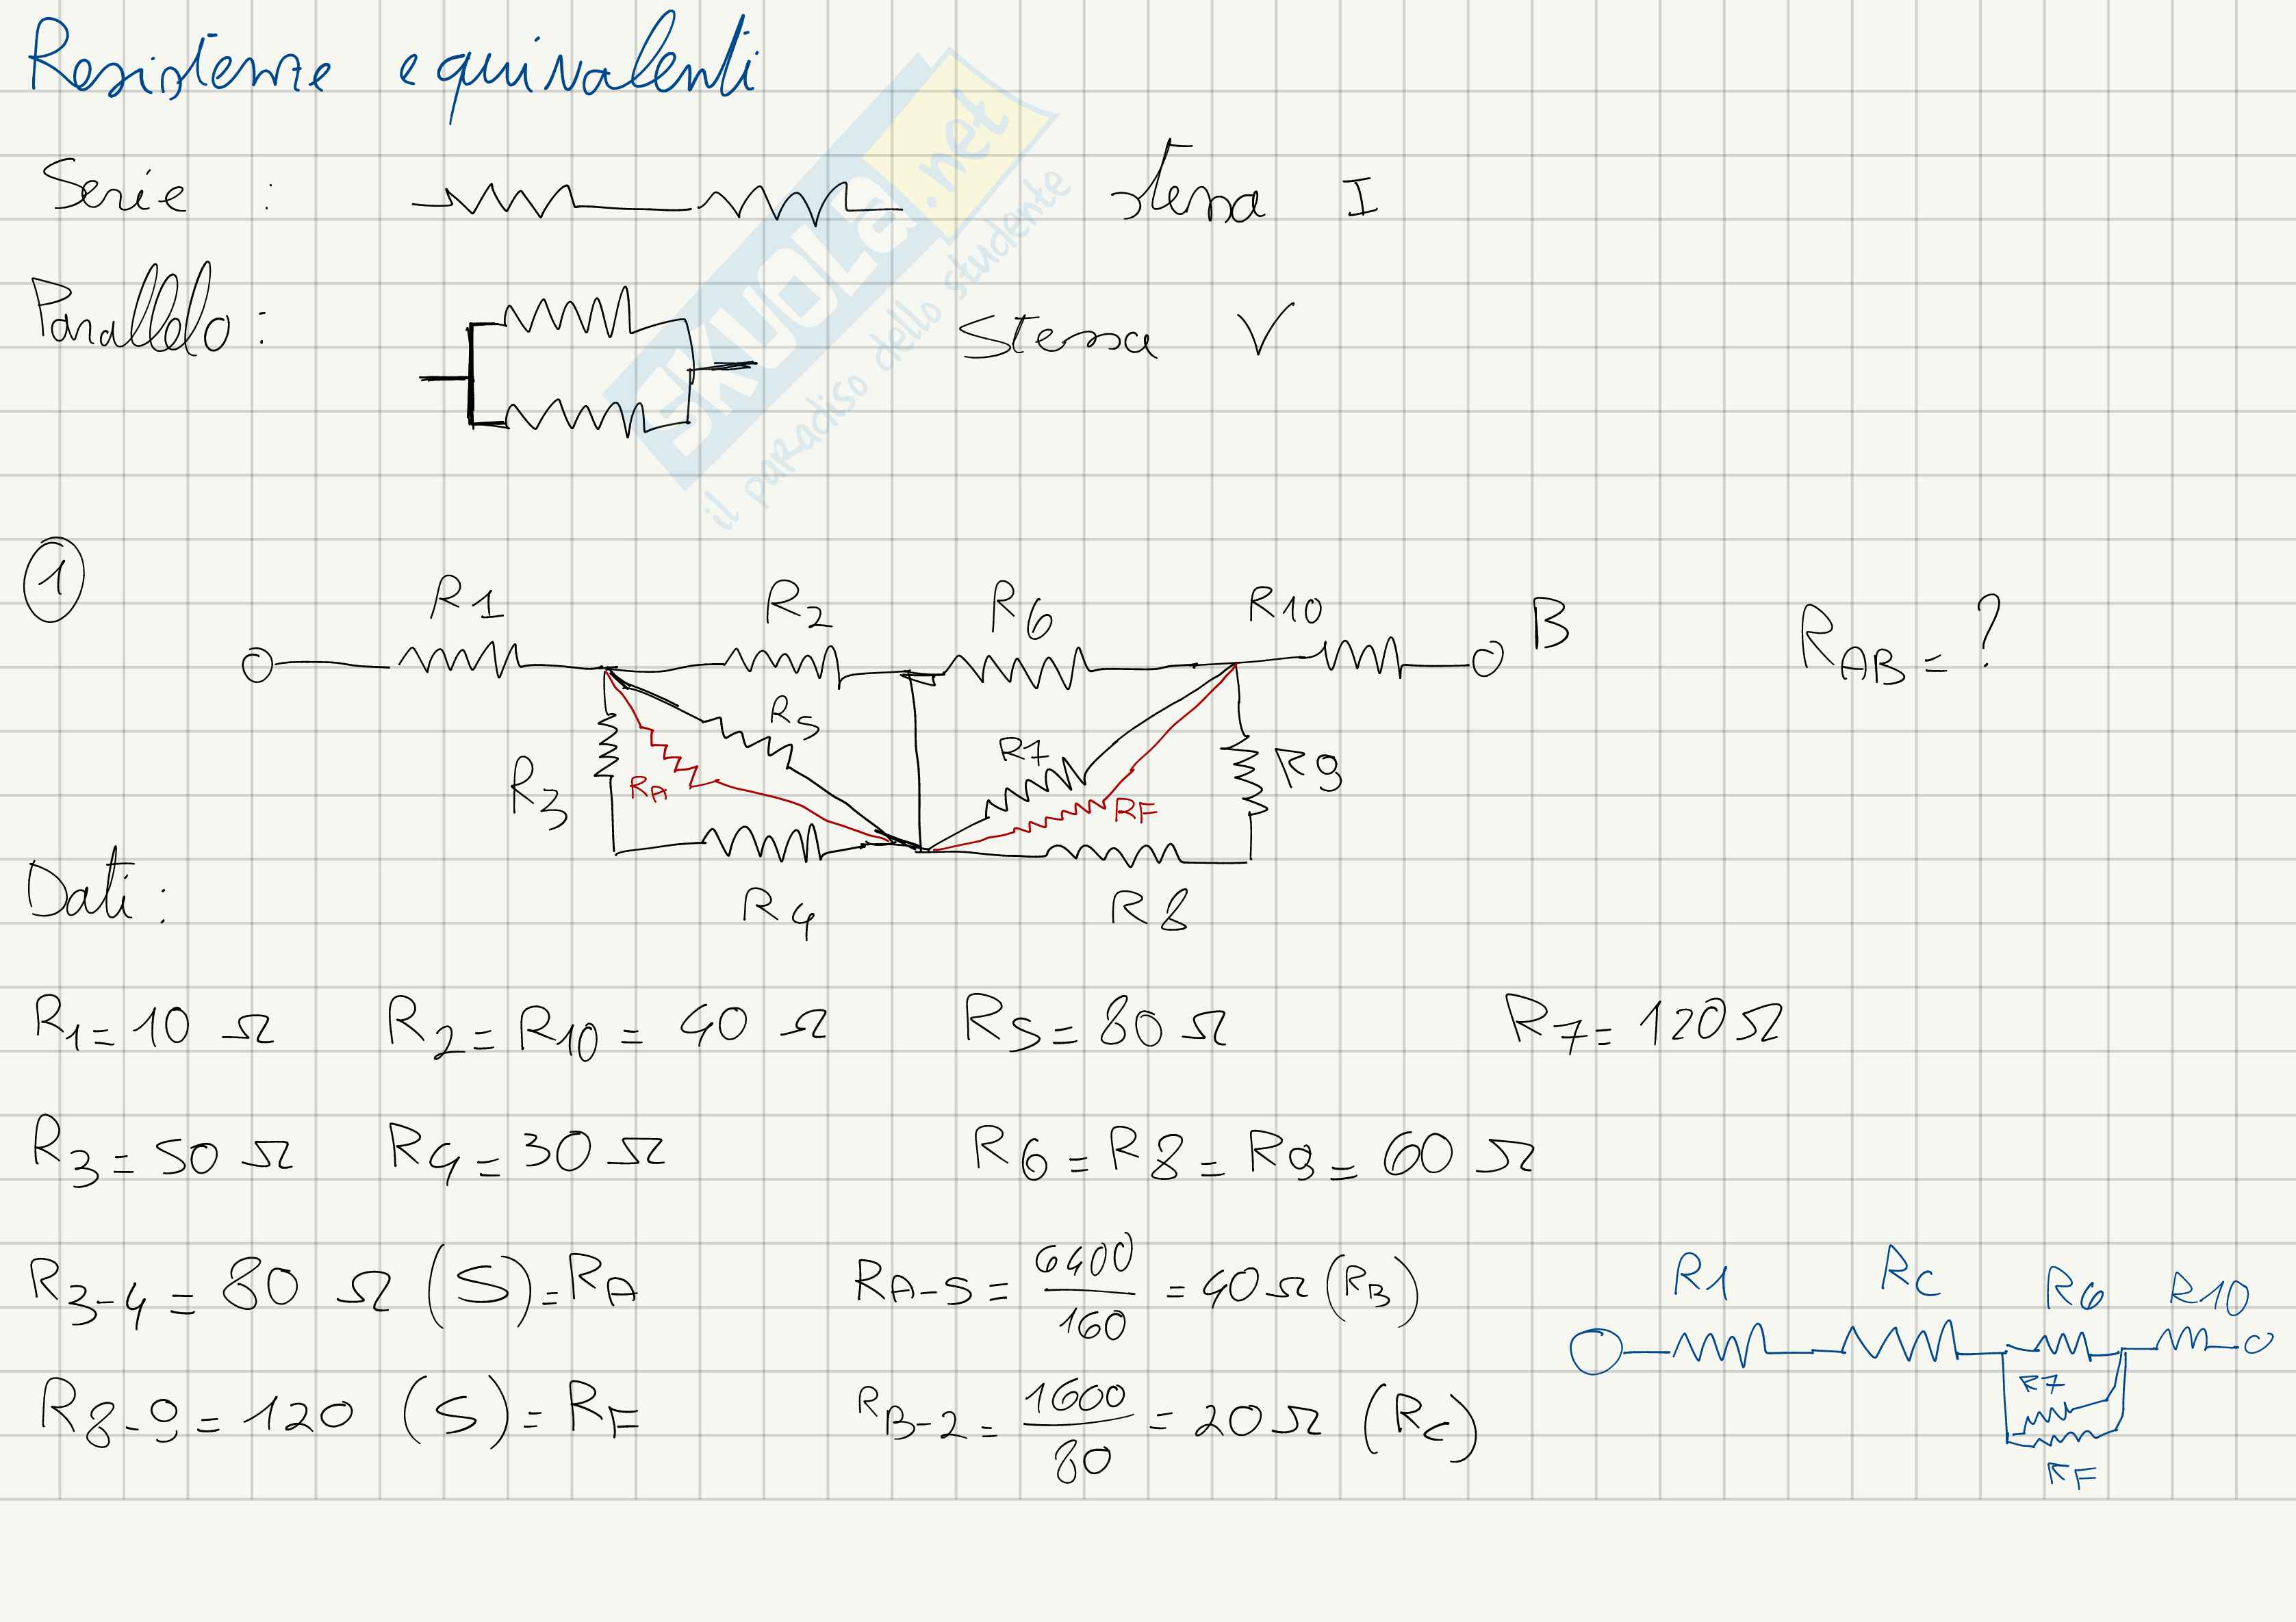 Resistenze equivalenti
Serie : stessa I
Parallelo : stessa V
SKUOLa.net
il paradiso dello studente
1
R1 R2 R6 R10 B RAB = ?
R5
R3 RA R7 RF R9
R4 R8
Dati :
R1 = 10 Ω R2 = R10 = 40 Ω R5 = 80 Ω R7 = 120 Ω
R3 = 50 Ω R4 = 30 Ω R6 = R8 = R9 = 60 Ω
R3-4 = 80 Ω (S) = RA RA-5 = 6400/160 = 40 Ω (RB)
R8-9 = 120 (S) = RF RB-2 = 1600/80 = 20 Ω (RC)
R1 RC R6 R10
R7
RF